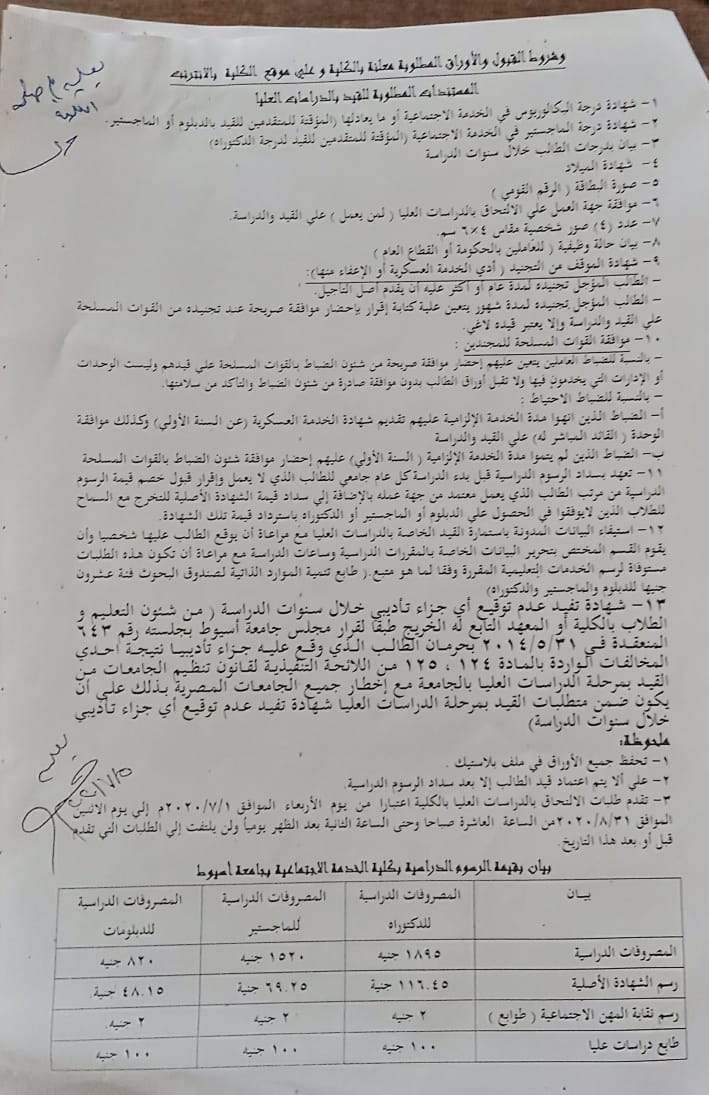 وشروط القبول والأوراق المطلوبة معلنة بالكلية و على موقع الكلية بالانترنت
المستندات المطلوبة للقيد بالدراسات العليا
١- شهادة درجة البكالوريوس في الخدمة الاجتماعية أو ما يعادلها (المؤقتة للمتقدمين للقيد بالدبلوم أو الماجستير.
٢- شهادة درجة الماجستير في الخدمة الاجتماعية (المؤقتة للمتقدمين للقيد لدرجة الدكتوراه)
٣- بيان بدرجات الطالب خلال سنوات الدراسة
٤- شهادة الميلاد
٥- صورة البطاقة ( الرقم القومي )
٦- موافقة جهة العمل علي الالتحاق بالدراسات العليا ( لمن يعمل ) علي القيد والدراسة.
٧- عدد (٤) صور شخصية مقاس ٤×٦ سم.
٨- بيان حالة وظيفية ( للعاملين بالحكومة أو القطاع العام )
٩- شهادة الموقف من التجنيد ( أدي الخدمة العسكرية أو الإعفاء منها):
– الطالب المؤجل تجنيده لمدة عام أو أكثر عليه أن يقدم أصل التأجيل.
– الطالب المؤجل تجنيده لمدة شهور يتعين علية كتابة إقرار بإحضار موافقة صريحة عند تجنيده من القوات المسلحة
علي القيد والدراسة وإلا يعتبر قيده لاغي.
١٠- موافقة القوات المسلحة للمجندين :
– بالنسبة للضباط العاملين يتعين عليهم إحضار موافقة صريحة من شئون الضباط بالقوات المسلحة علي قيدهم وليست الوحدات
أو الإدارات التي يخدمون فيها ولا تقبل أوراق الطالب بدون موافقة صادرة من شئون الضباط والتأكد من سلامتها.
– بالنسبة للضباط الاحتياط :
أ- الضباط الذين انهوا مدة الخدمة الإلزامية عليهم تقديم شهادة الخدمة العسكرية (عن السنة الأولي) وكذلك موافقة
الوحدة ( القائد المباشر له) علي القيد والدراسة
ب- الضباط الذين لم يتموا مدة الخدمة الإلزامية ( السنة الأولي) عليهم إحضار موافقة شئون الضباط بالقوات المسلحة
١١- تعهد بسداد الرسوم الدراسية قبل بدء الدراسة كل عام جامعي للطالب الذي لا يعمل وإقرار قبول خصم قيمة الرسوم
الدراسية من مرتب الطالب الذي يعمل معتمد من جهة عمله بالإضافة إلي سداد قيمة الشهادة الأصلية للتخرج مع السماح
للطلاب الذين لايوفقوا في الحصول علي الدبلوم أو الماجستير أو الدكتوراه باسترداد قيمة تلك الشهادة.
١٢- استيفاء البيانات المدونة باستمارة القيد الخاصة بالدراسات العليا مع مراعاة أن يوقع الطالب عليها شخصيا وأن
يقوم القسم المختص بتحرير البيانات الخاصة بالمقررات الدراسية وساعات الدراسة مع مراعاة أن تكون هذه الطلبات
مستوفاة لرسم الخدمات التعليمية المقررة وفقا لما هو متبع.( طابع تنمية الموارد الذاتية لصندوق البحوث فئة عشرون
جنيها للدبلوم والماجستير والدكتوراه)
١٣- شهادة تفيد عدم توقيع أي جزاء تأديبي خلال سنوات الدراسة ( من شئون التعليم و
الطلاب بالكلية أو المعهد التابع له الخريج طبقا لقرار مجلس جامعة أسيوط بجلسته رقم ٦٤٣
المنعقدة في ٢٠١٤/٥/٣١ بحرمان الطالب الذي وقع عليه جزاء تأديبيا نتيجة احدي
المخالفات الواردة بالمادة ١٢٤ ، ١٢٥ من اللائحة التنفيذية لقانون تنظيم الجامعات من
القيد بمرحلة الدراسات العليا بالجامعة مع إخطار جميع الجامعات المصرية بذلك علي أن
يكون ضمن متطلبات القيد بمرحلة الدراسات العليا شهادة تفيد عدم توقيع أي جزاء تأديبي
خلال سنوات الدراسة)
ملحوظة:
١- تحفظ جميع الأوراق في ملف بلاستيك .
٢- علي ألا يتم اعتماد قيد الطالب إلا بعد سداد الرسوم الدراسية.
٣- تقدم طلبات الالتحاق بالدراسات العليا بالكلية اعتبارا من يوم الأربعاء الموافق ٢٠٢٠/٧/١م إلي يوم الاثنين
الموافق ٢٠٢٠/٨/٣١من الساعة العاشرة صباحا وحتى الساعة الثانية بعد الظهر يومياً ولن يلتفت إلي الطلبات التي تقدم
قبل أو بعد هذا التاريخ.
بيان بقيمة الرسوم الدراسية بكلية الخدمة الاجتماعية بجامعة أسيوط
بيــان المصروفات الدراسية للدكتوراه المصروفات الدراسية للماجستير المصروفات الدراسية للدبلومات
المصروفات الدراسية ١٨٩٥ جنيه ١٥٢٠ جنيه ٨٢٠ جنيه
رسم الشهادة الأصلية ١١٦.٤٥ جنيه ٦٩.٢٥ جنيه ٤٨.١٥ جنية.
رسم نقابة المهن الاجتماعية ( طوابع ) ٢ جنيه ٢ جنيه ٢ جنيه.
طابع دراسات عليا ١٠٠ جنيه ١٠٠ جنيه ١٠٠ جنيه